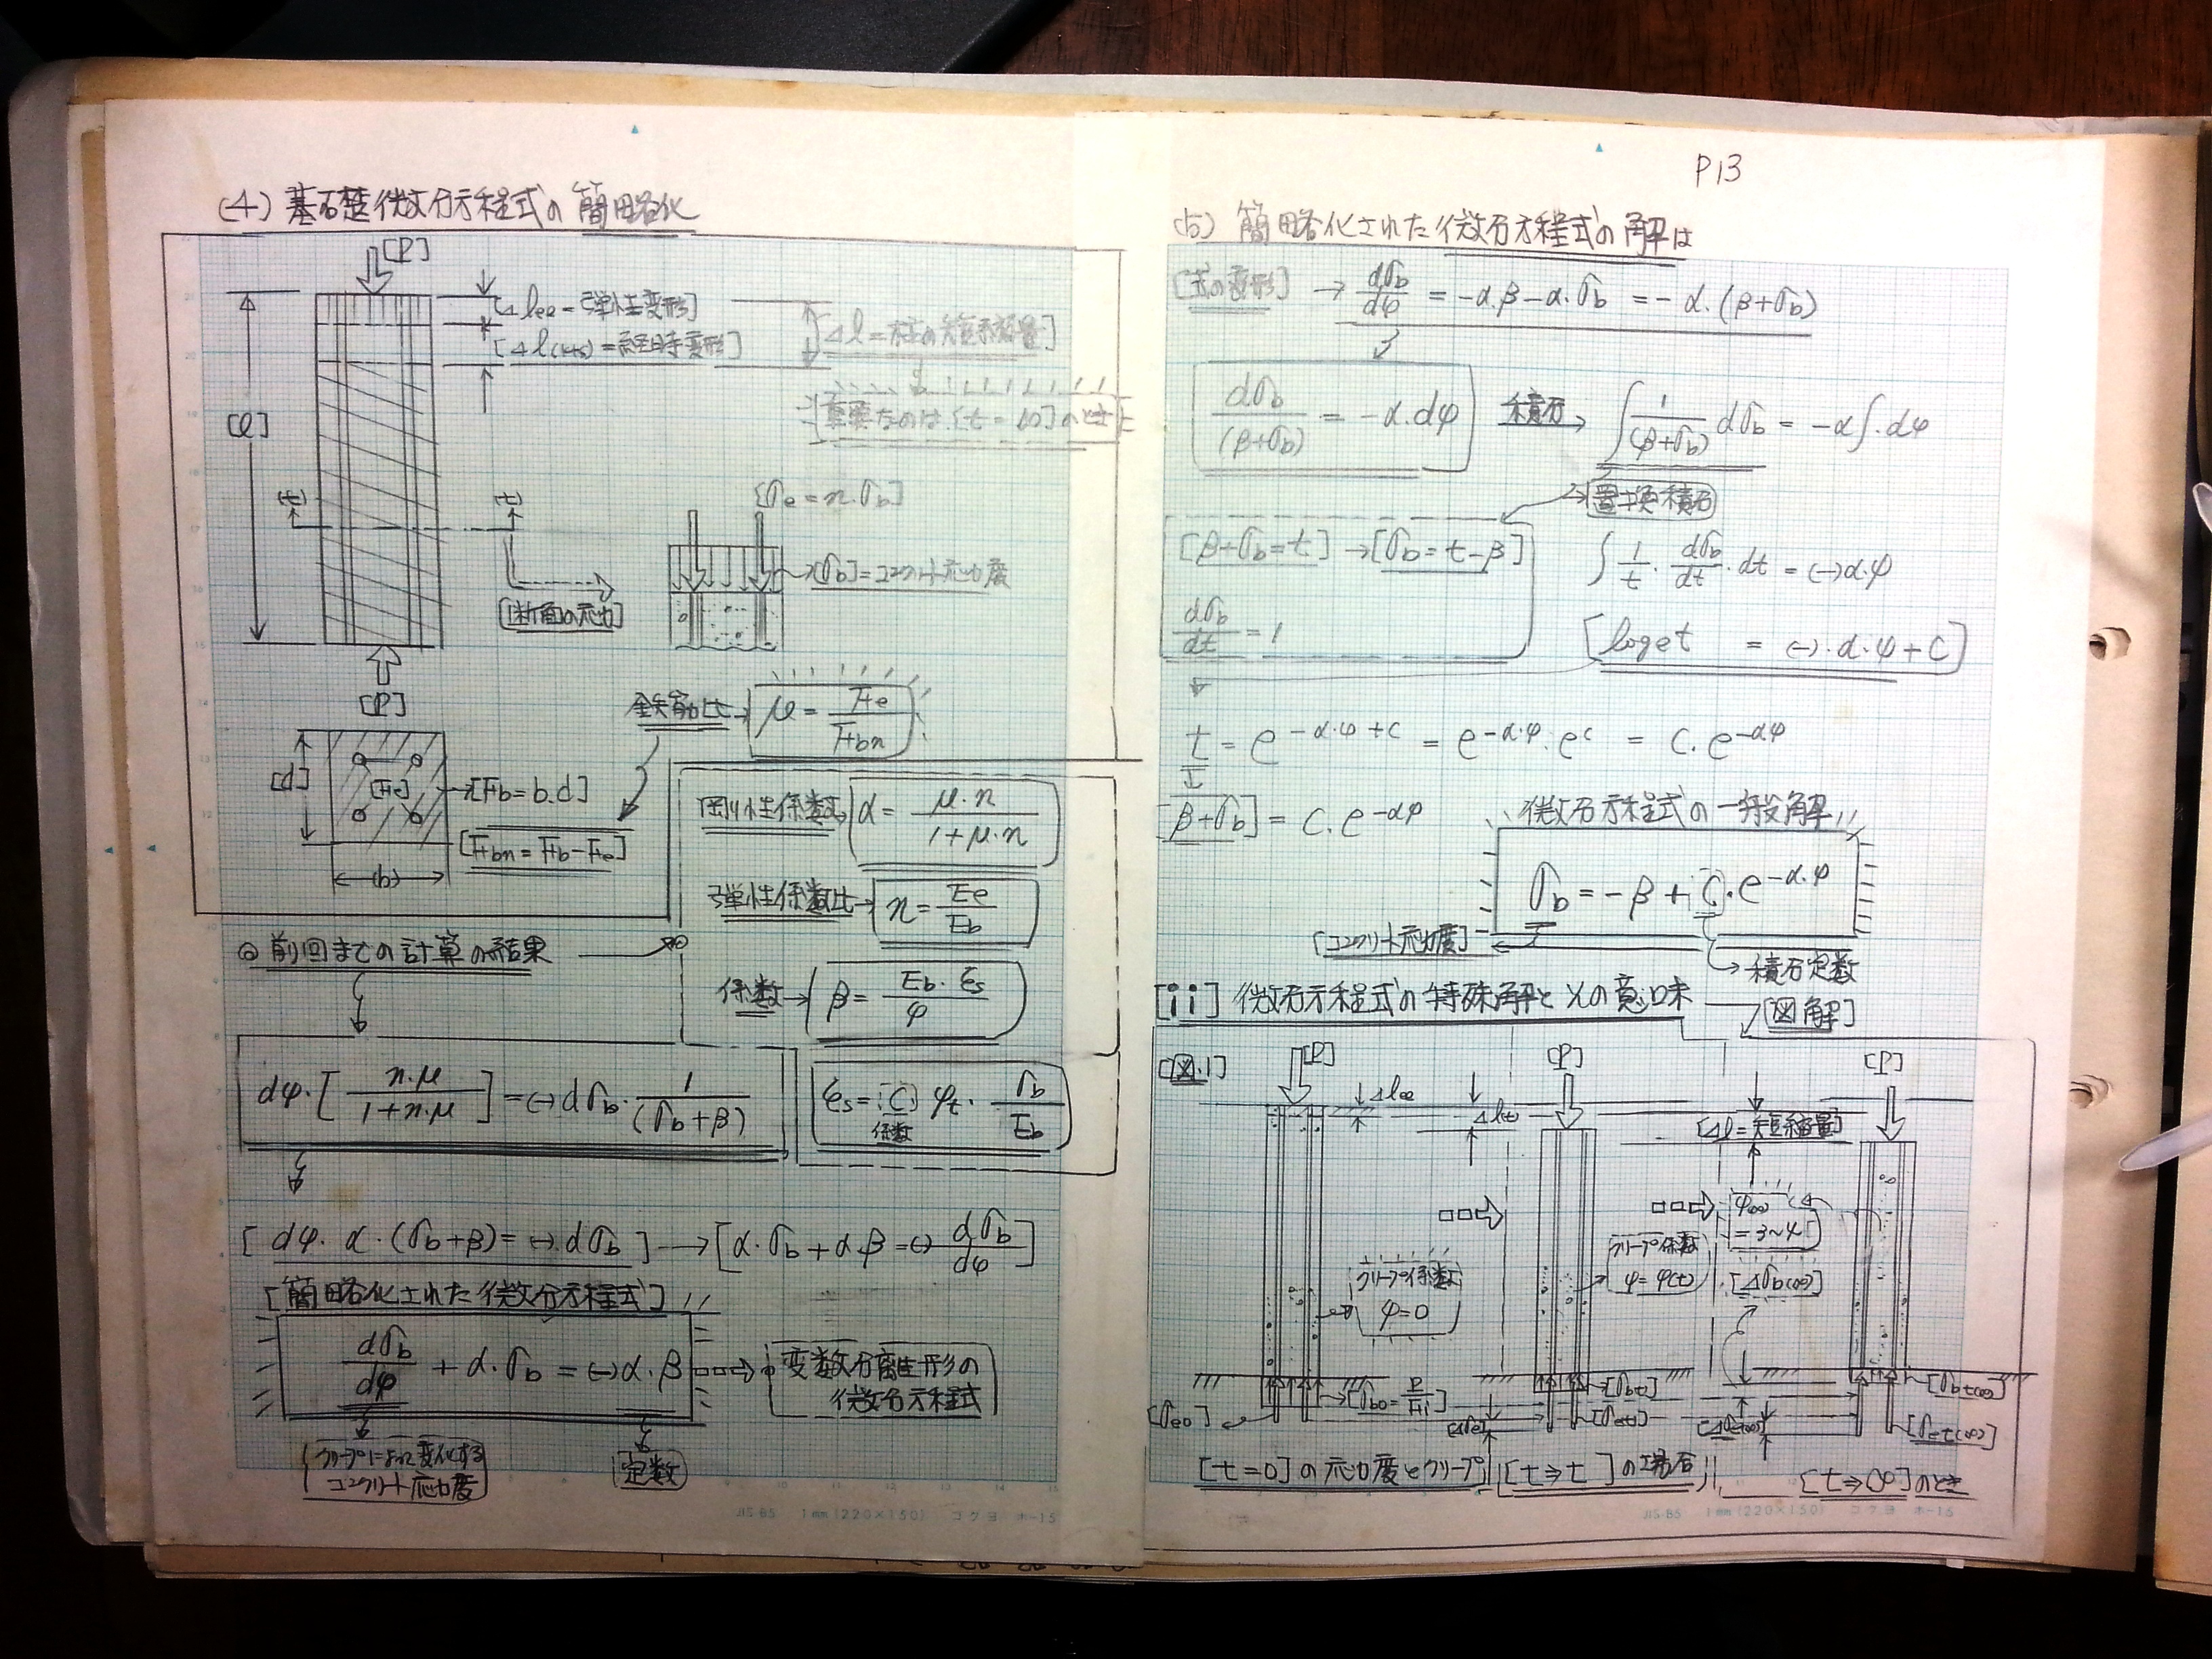 (4) 基礎微分方程式の簡略化
[P]
[Δlee=弾性変形]
[Δl(k+s)=経時変形]
[Δl=柱の短縮量]
重要なのは[t=∞]のとき
[l]
(t) (t)
[σe=n.σb]
[σb]=コンクリート応力度
[断面の応力]
[P]
鉄筋比→ μ=Fe/Fbn
[d]
[Fe]
[Fb=b.d]
[Fbn=Fb-Fe]
(b)
剛性係数 α=μ.n/1+μ.n
弾性係数比→ n=Ee/Eb
◎前回までの計算の結果
係数→ β=Eb.εs/φ
dφ.[n.μ/1+n.μ]=(-)dσb.1/(σb+β)
εs=(C)φt.σb/Eb
係数
[dφ.α.(σb+β)=(-).dσb]→[α.σb+α.β=(-)dσb/dφ]
[簡略化された微分方程式]
dσb/dφ+α.σb=(-)α.β
変数分離形の
微分方程式
クリープによって変化する
コンクリート応力度
定数
JIS B5 1mm(220×150) コクヨ ホ-15
P13
(5) 簡略化された微分方程式の解は
[式の変形]→dσb/dφ=-α.β-α.σb=-α.(β+σb)
dσb/(β+σb)=-α.dφ 積分→ ∫1/(β+σb)dσb=-α∫.dφ
置換積分
[β+σb=t]→[σb=t-β]
∫1/t.dσb/dt.dt=(-)α.φ
dσb/dt=1
[loget =(-).α.φ+C]
t=e-α.φ+c=e-α.φ.ec=C.e-αφ
[β+σb]=C.e-αφ
微分方程式の一般解
σb=-β+C.e-α.φ
[コンクリート応力度]
積分定数
[ii] 微分方程式の特殊解とその意味
[図解]
[図.1]
[P] [P] [P]
Δlee
Δl(t)
[Δl=短縮量]
クリープ係数
φ=0
クリープ係数
φ=φ(t)
φ(∞)
=3~4
[Δσb(∞)]
[σe0]
[σb0=P/Fi]
[σbt]
[σet]
[Δσe]
[Δσe(∞)]
[σbt(∞)]
[σet(∞)]
[t=0]の応力度とクリープ
[t⇒t]の場合
[t⇒∞]のとき
JIS B5 1mm(220×150) コクヨ ホ-15